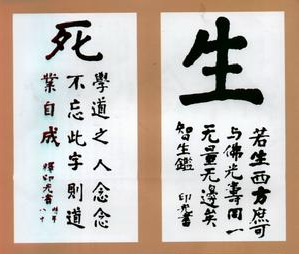 生
若生西方庶可
与佛光壽同一
无量无邊矣
智生鑑
印光書
死
學道之人念念
不忘此字則道
業自成
釋印光書